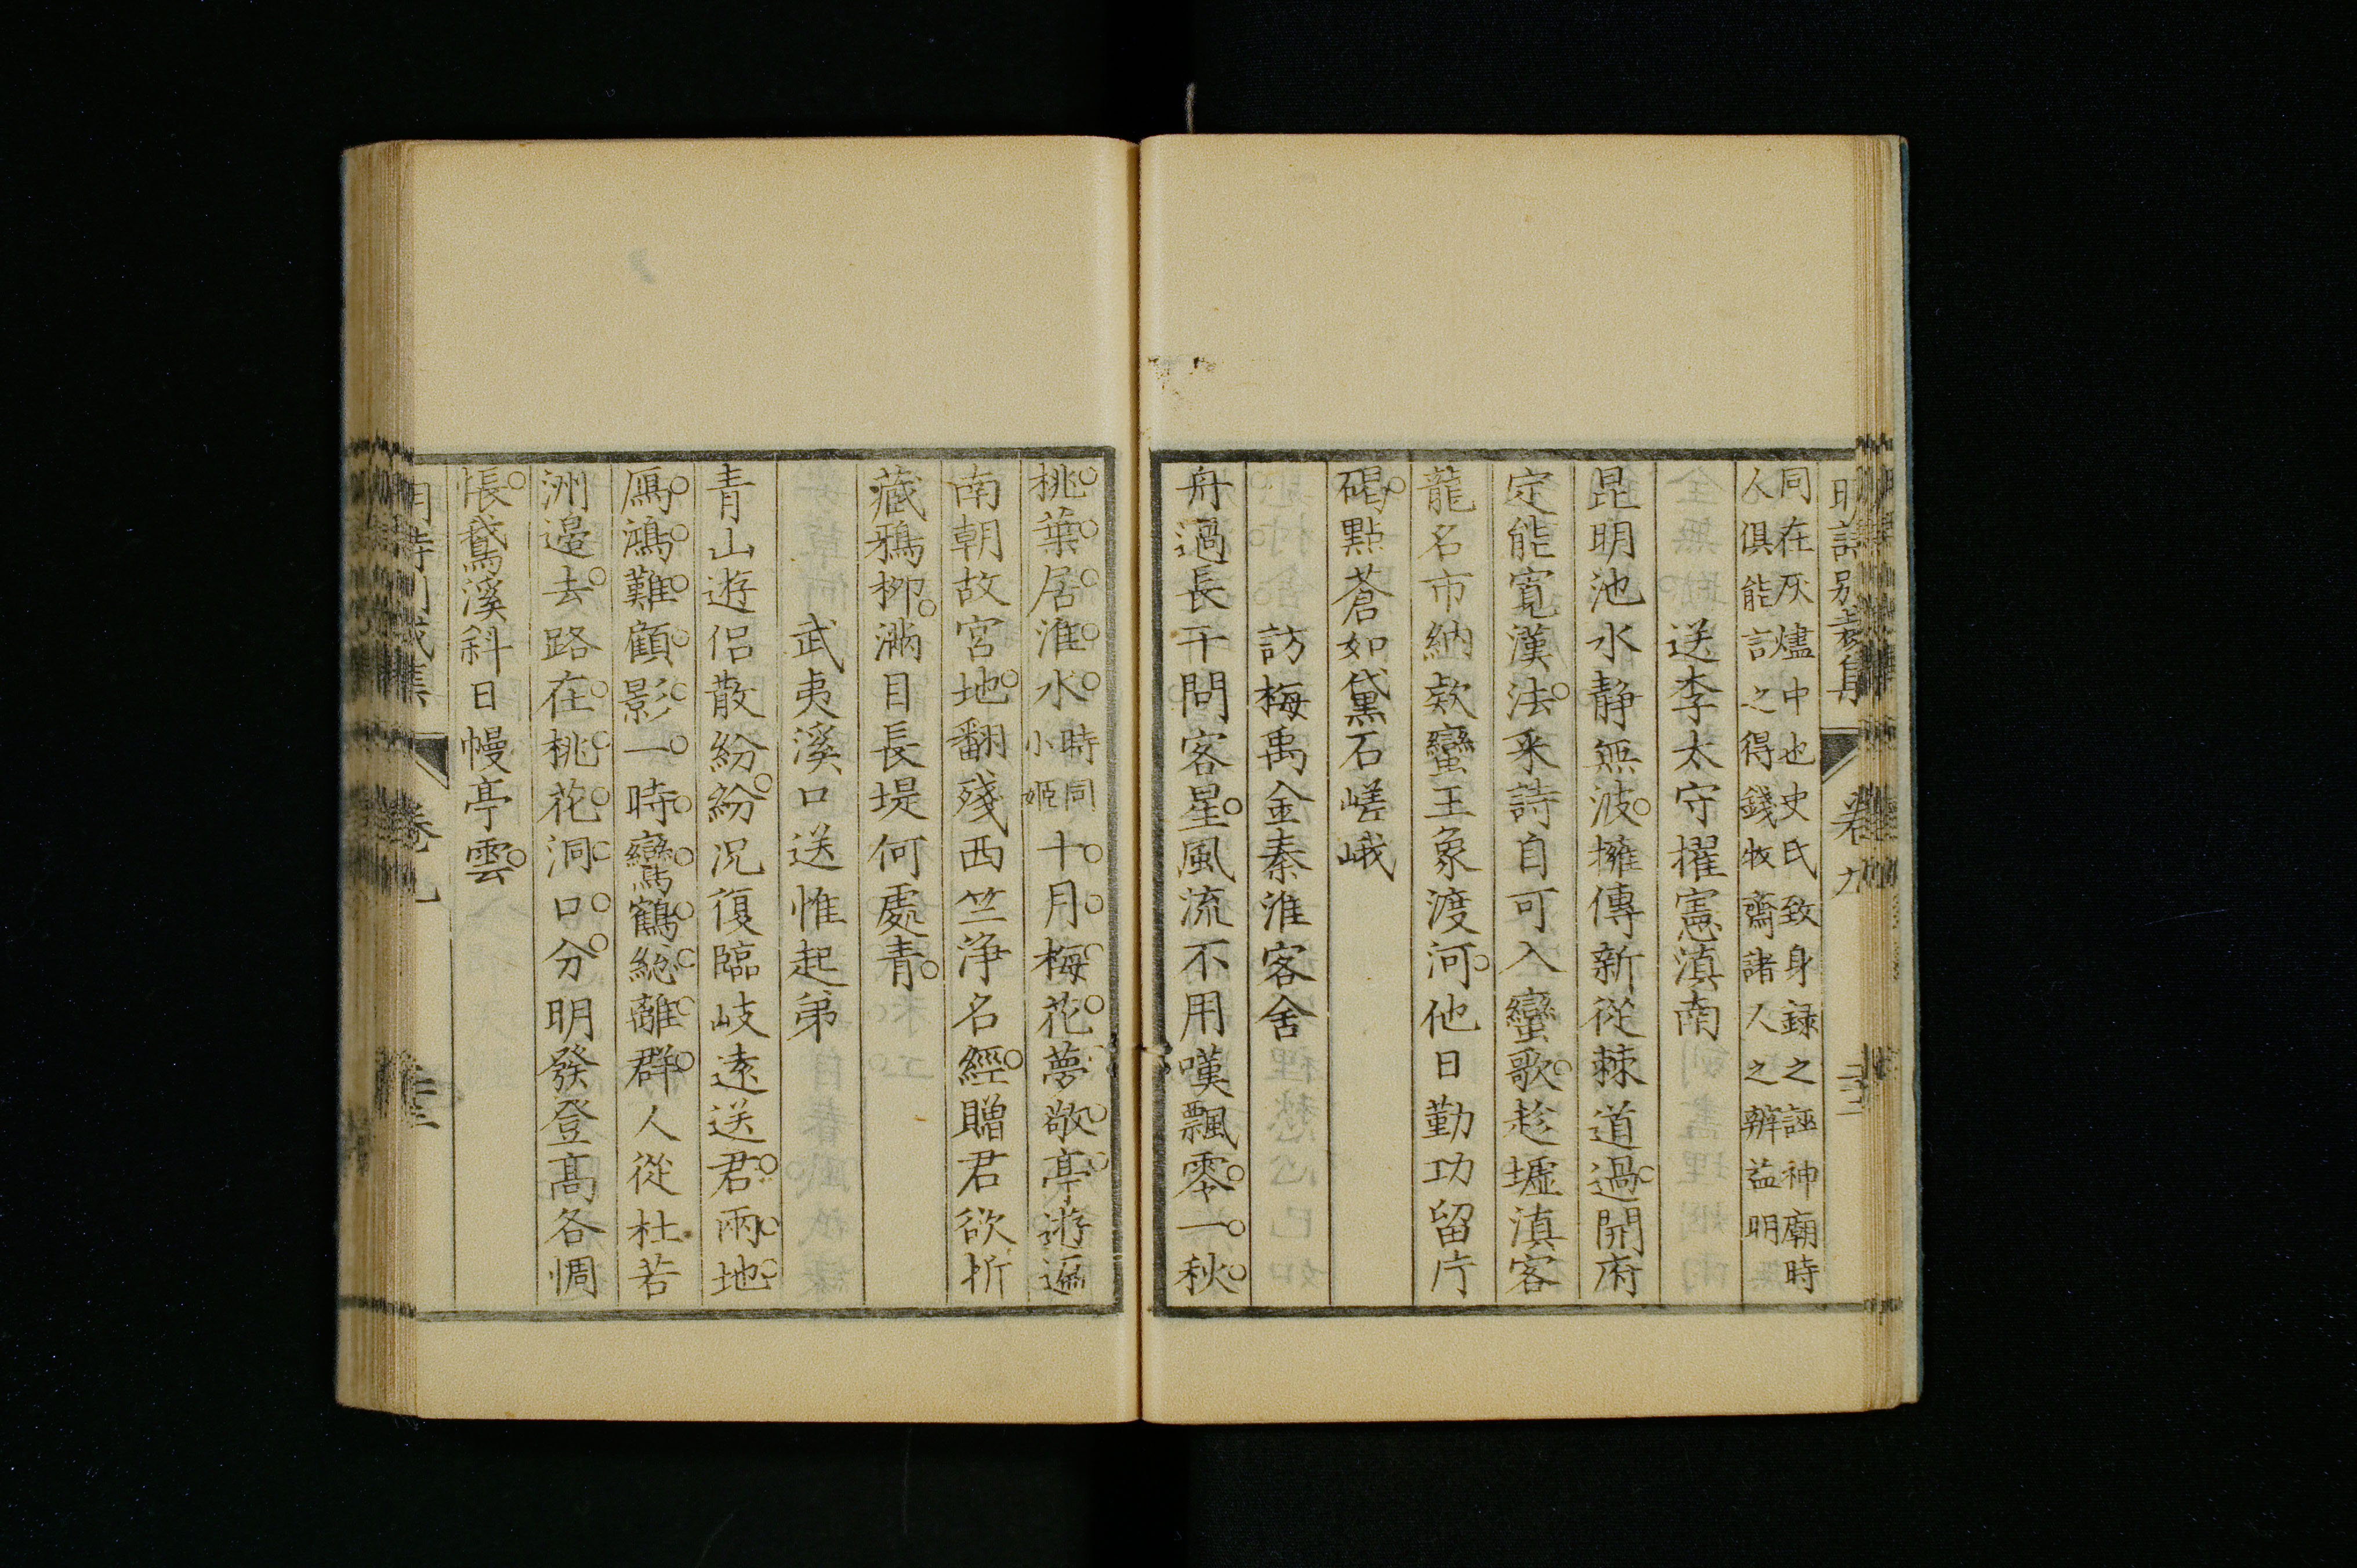 明詩別裁集 卷九
同在灰燼中也史氏致身録之誣神廟時
人俱能言之得錢牧齋諸人之辨益明
送李太守擢憲滇南
昆明池水静無波擁傳新從棘道過開府
定能寛漢法采詩自可入蠻歌趁墟滇客
龍名市納欵蠻王象渡河他日勤功留片
碣點蒼如黛石嵯峨
訪梅禹金秦淮客舍
舟過長干問客星風流不用嘆飄零一秋
桃葉居淮水時同小姬十月梅花夢敬亭遊遍
南朝故宮地翻殘西竺淨名經贈君欲折
藏鴉柳滿目長堤何處青
武夷溪口送惟起弟
青山遊侣散紛紛况復臨岐遠送君兩地
鴈鴻難顧影一時鸞鶴緫離群人從杜若
洲邉去路在桃花洞口分明發登高各惆
悵鵞溪斜日幔亭雲
卷九